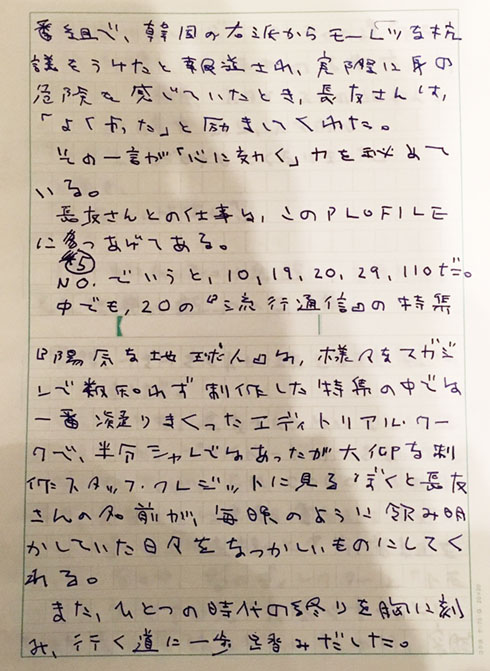 番組で、韓国の右派からモーレツな抗
議をうけたと報道され、実際に身の
危険を感じていたとき、長友さんは、
「よくやった」と励ましてくれた。
その一言が「心に効く」力を秘めて
いる。
長友さんとの仕事は、このPLOFILE
に5つあげてある。
⑤
NO.でいうと、10,19,20,29,110だ。
中でも、20の『流行通信』の特集
『陽気な地球人』は、様々なマガジ
ンで数知れず制作した特集の中では
一番凝りまくったエディトリアル・ワー
クで、半分シャレではあったが大仰な制
作スタッフ・クレジットに見るぼくと長友
さんの名前が、毎晩のように飲み明
かしていた日々をなつかしいものにしてく
れる。
また、ひとつの時代の終りを胸に刻
み、行く道に一歩足踏みだした。